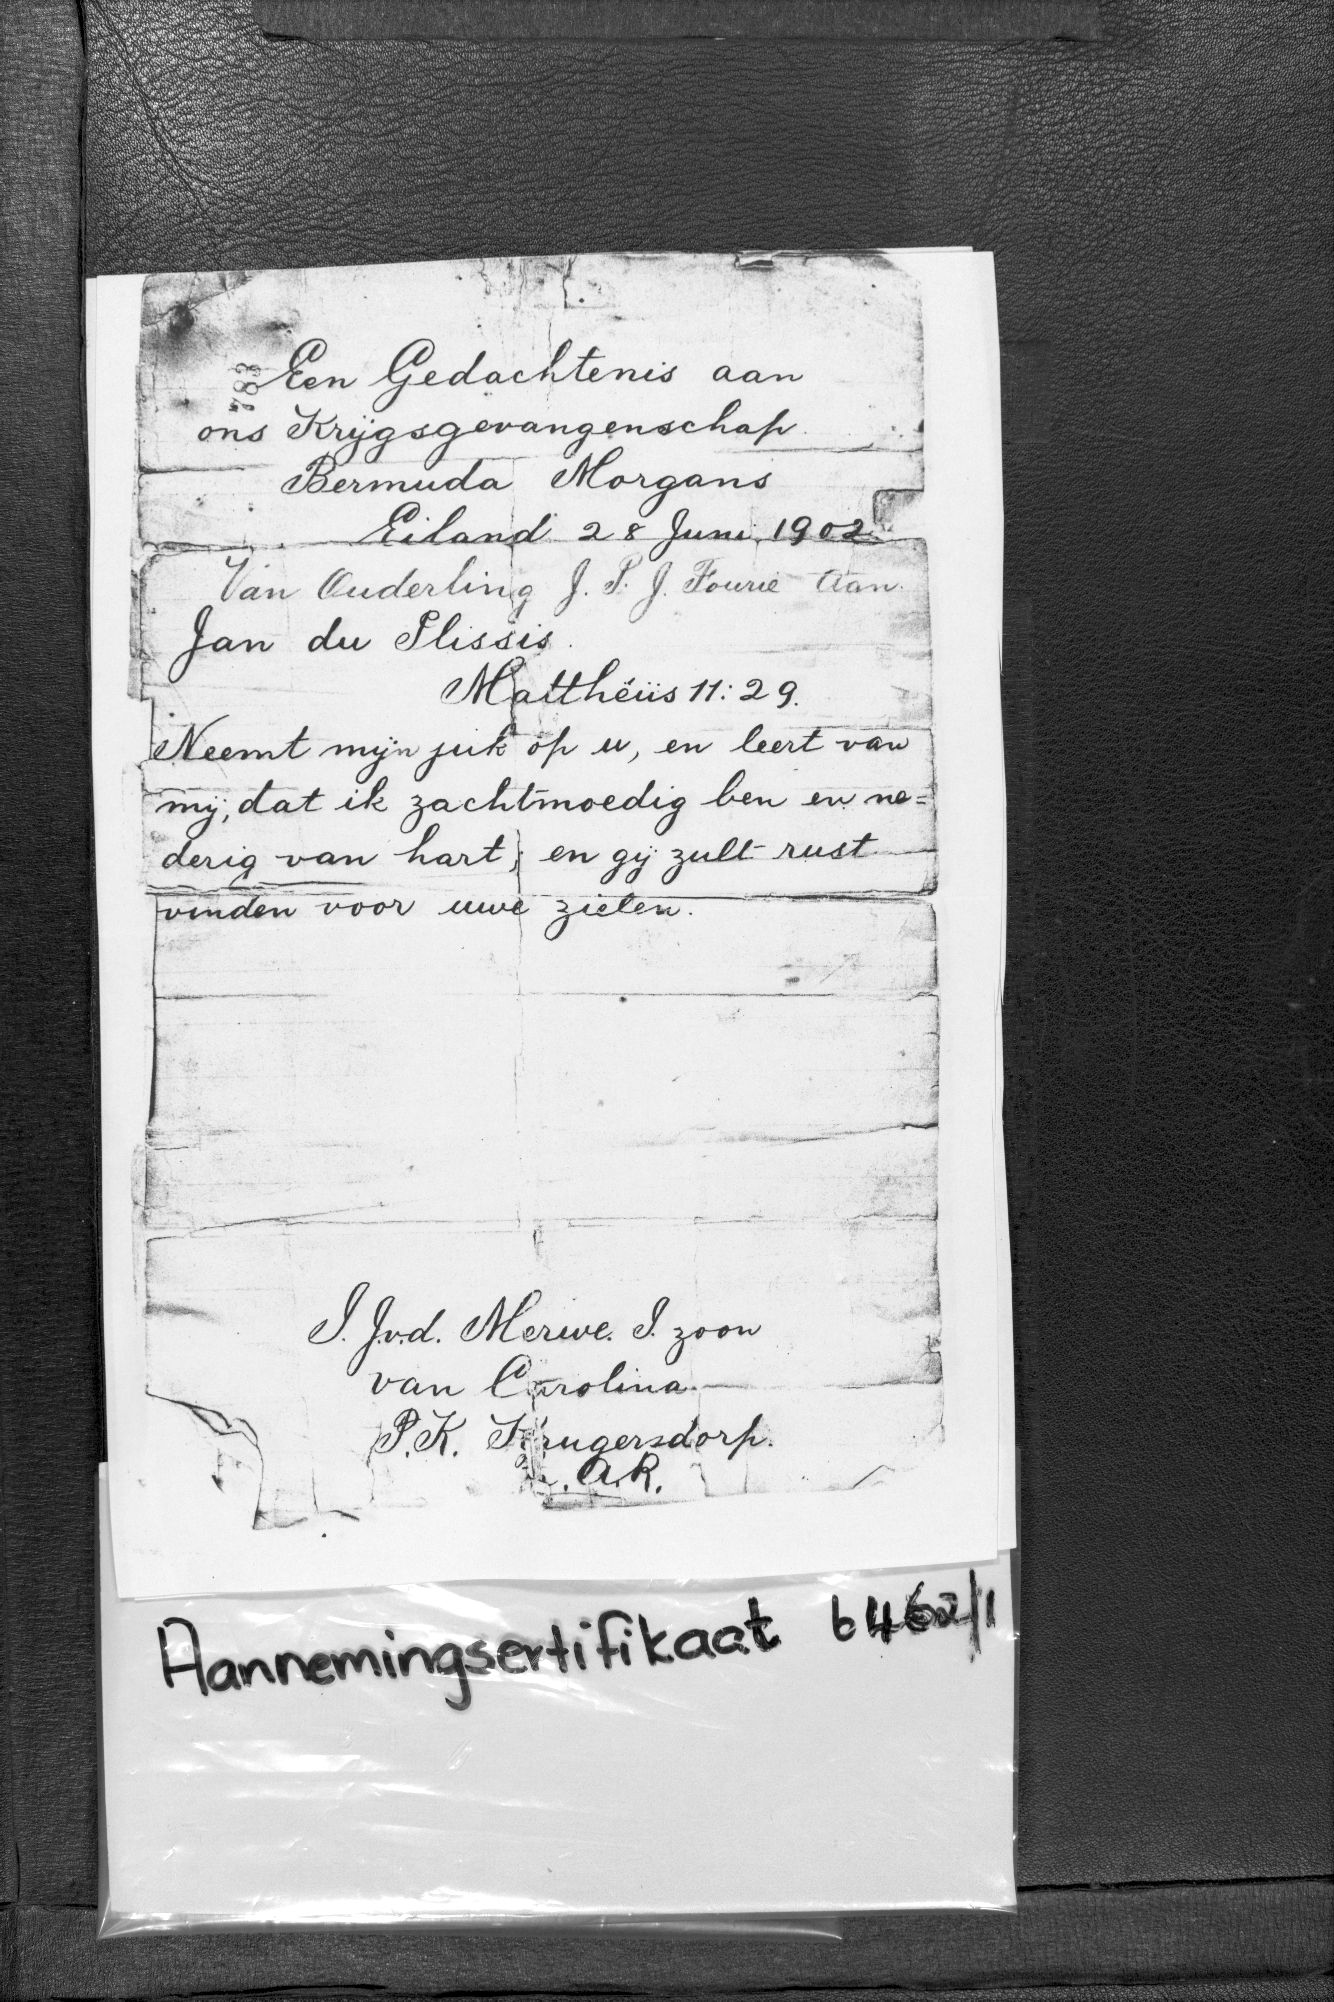 783
Een Gedachtenis aan
ons Krijgsgevangenschap
Bermuda Morgans
Eiland 28 Juni 1902
Van Ouderling J. P. J. Fourie Aan
Jan du Plissis.
Matthëüs 11:29.
Neemt mijn juk op u, en leert van
mij, dat ik zachtmoedig ben en ne=
derig van hart; en gij zult rust
vinden voor uwe zielen.
S. J. v. d. Merwe. S. zoon
van Carolina
P. K. Krugersdorp.
A. R.
Aannemingsertifikaat